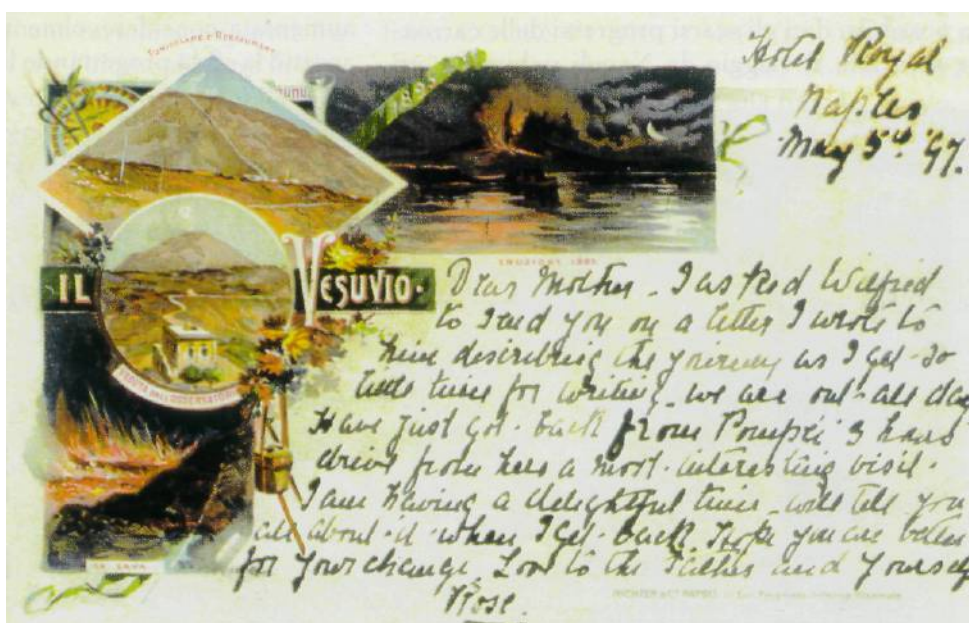 Hotel Royal
Naples
May 5th '97.
FUNICOLARE E RESTAURANT
ERUZIONE 1885
IL VESUVIO.
VEDUTA DALL'OSSERVATORIO
LA LAVA
Dear Mother - I asked Wilfred
to send you on a letter I wrote to
him describing the journey as I get so
little time for writing - we are out all day
Have just got back from Pompei 3 hours
drive from here a most interesting visit.
I am having a delightful time - will tell you
all about it when I get back. Hope you are better
for your change Love to the Father and Yourself
Rose.
RICHTER & Co NAPOLI